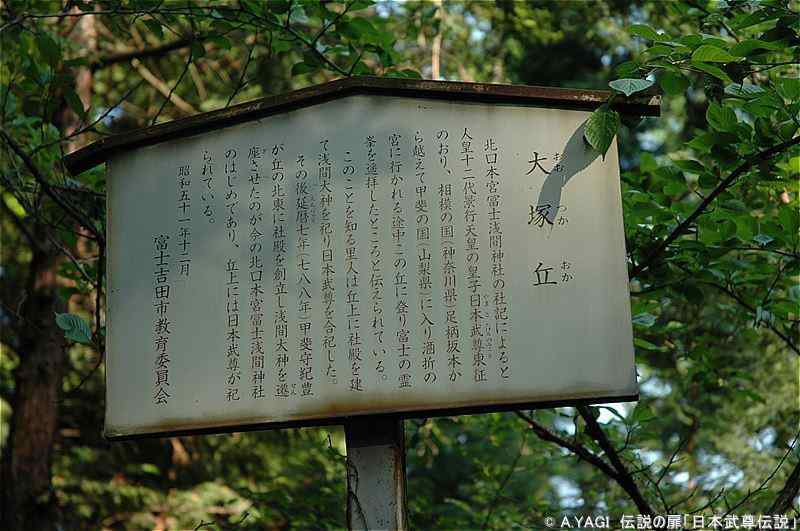 大塚丘
おお つか おか
北口本宮冨士浅間神社の社記によると
人皇十二代景行天皇の皇子日本武尊東征
のおり、相模の国(神奈川県)足柄坂本か
ら越えて甲斐の国(山梨県)に入り酒折の
宮に行かれる途中この丘に登り富士の霊
峯を遥拝したところと伝えられている。
このことを知る里人は丘上に社殿を建
て浅間大神を祀り日本武尊を合祀した。
その後延暦七年(七八八年)甲斐守紀豊
が丘の北東に社殿を創立し浅間大神を遷
座させたのが今の北口本宮冨士浅間神社
のはじめであり、丘上には日本武尊が祀
られている。
昭和五十一年十二月
富士吉田市教育委員会
© A.YAGI 伝説の扉「日本武尊伝説」